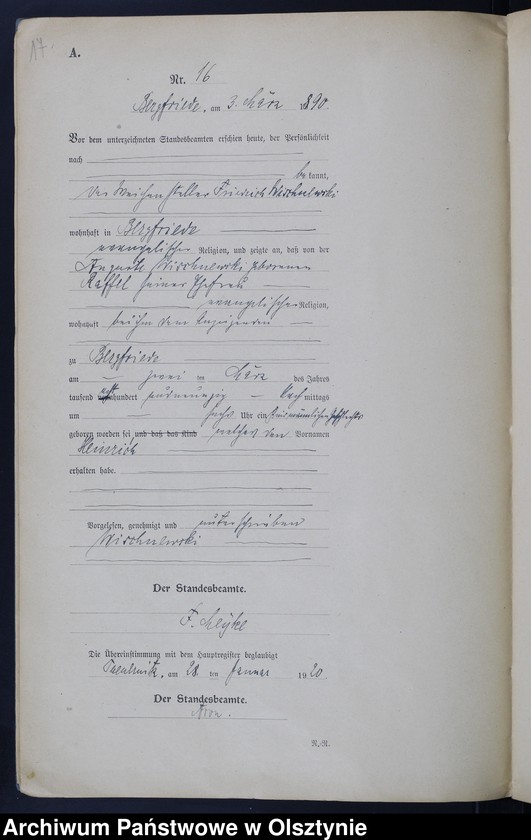 17.
A.
Nr. 16
Bergfriede, am 3. März 1890.
Vor dem unterzeichneten Standesbeamten erschien heute, der Persönlichkeit
nach
be kannt,
der Weichensteller Friedrich Wischnewski
wohnhaft in Bergfriede
evangelischer Religion, und zeigte an, daß von der
Auguste Wischnewski geborenen
Raffel seiner Ehefrau
evangelischer Religion,
wohnhaft bei ihm dem Anzeigenden
zu Bergfriede
am zwei ten März des Jahres
tausend acht hundert und neunzig Nach mittags
um sechs Uhr ein Kind männlichen Geschlechts
geboren worden sei und daß das Kind welches den Vornamen
Heinrich
erhalten habe.
Vorgelesen, genehmigt und unterschrieben
Wischnewski
Der Standesbeamte.
F.
Die Übereinstimmung mit dem Hauptregister beglaubigt
am 28 ten Januar 1920.
Der Standesbeamte.
N.-R.
Archiwum Państwowe w Olsztynie